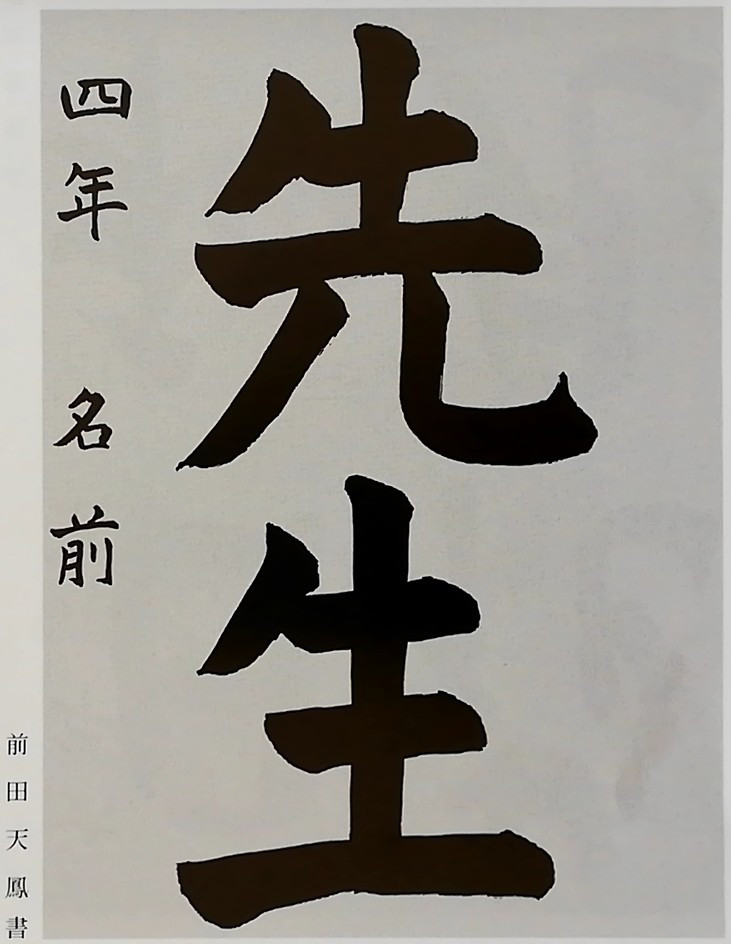 先生
四年 名前
前田天鳳書